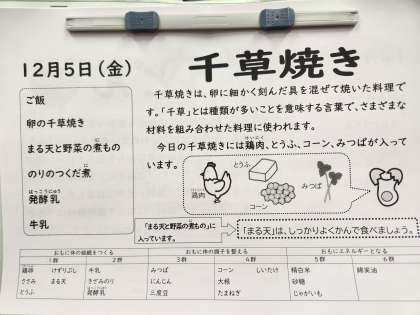 12月5日(金)
千草焼き
ご飯
卵の千草焼き
まる天と野菜の煮もの
のりのつくだ煮
発酵乳
牛乳
千草焼きは、卵に細かく刻んだ具を混ぜて焼いた料理で
す。「千草」とは種類が多いことを意味する言葉で、さまざまな
材料を組み合わせた料理に使われます。
今日の千草焼きには鶏肉、とうふ、コーン、みつばが入って
います。
鶏肉
とうふ
コーン
みつば
「まる天と野菜の煮もの」に
入っています。
「まる天」は、しっかりよくかんで食べましょう。
おもに体の組織をつくる おもに体の調子を整える おもにエネルギーとなる
1群 2群 3群 4群 5群 6群
鶏卵 けずりぶし 牛乳 みつば コーン しいたけ 精白米 綿実油
ささみ まる天 きざみのり にんじん 大根 砂糖
とうふ 発酵乳 三度豆 たまねぎ じゃがいも